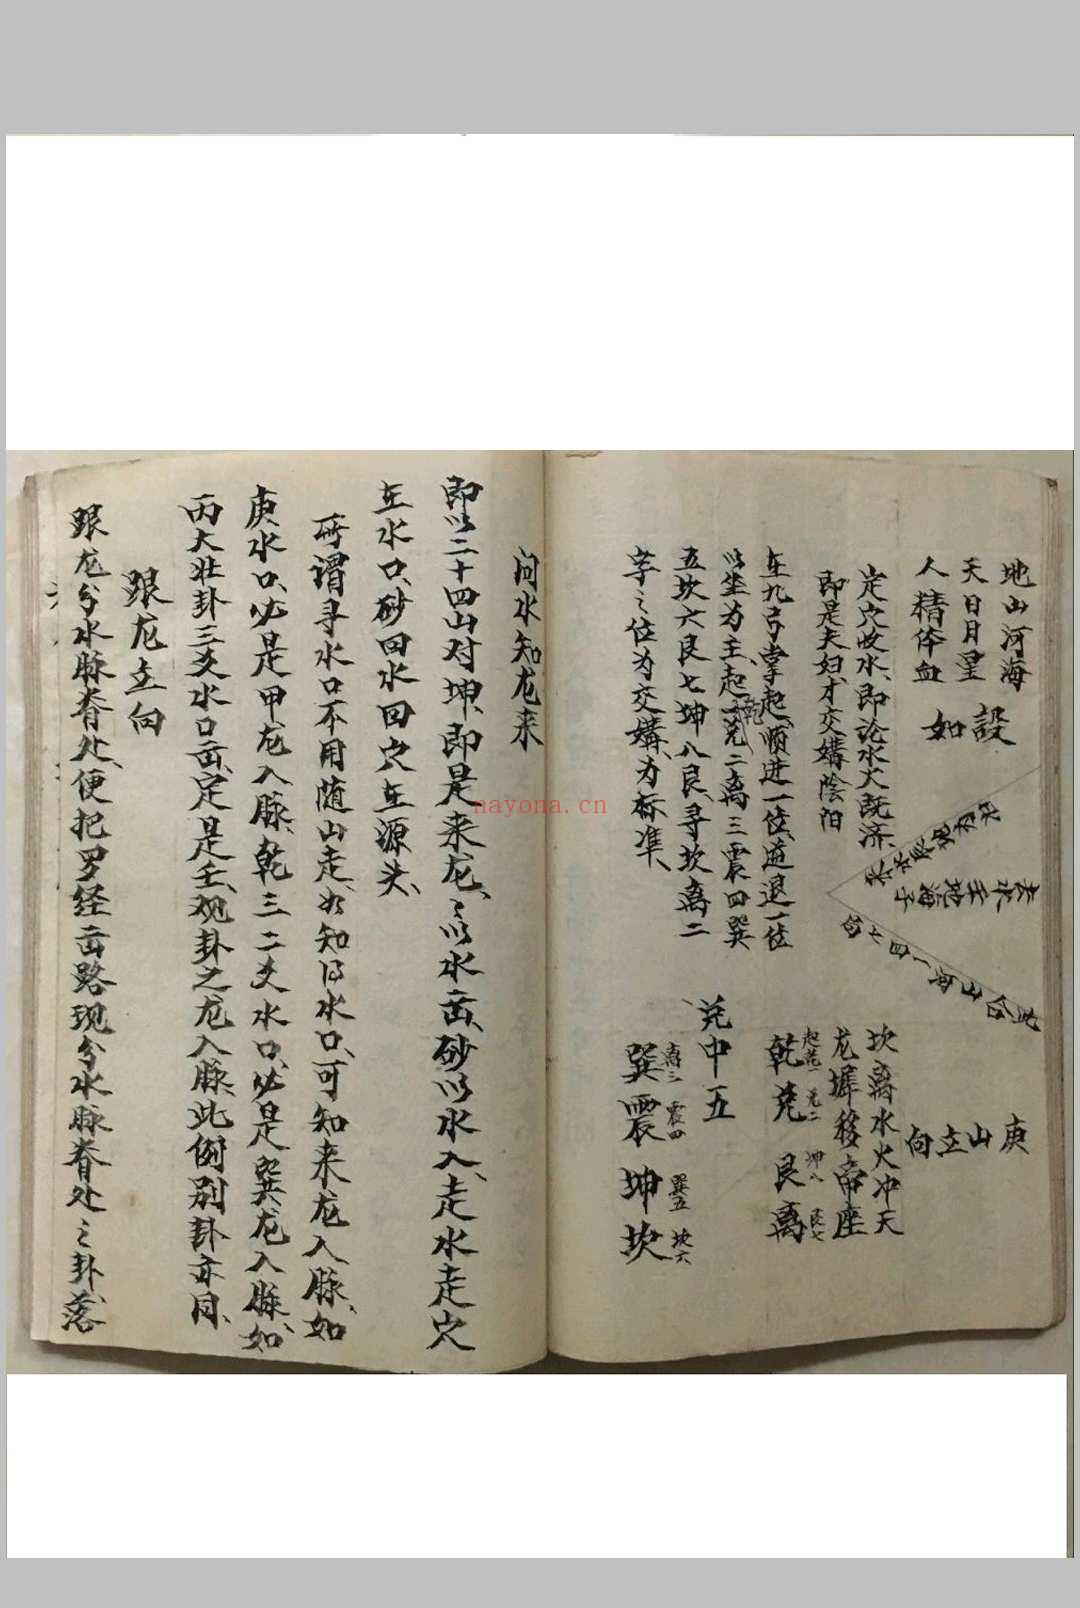 地山河海
天日月星
人精体血
設
如
庚
山
立
向
定穴收水、即论水火既济、
即是夫妇、才交媾陰阳
坎离水火冲天
龙墀移帝座
在九弓掌起、顺进一位、逆退一位
以坐为主、起乾一兑二离三震四巽
五坎六艮七坤八艮、寻坎离二
字之位为交媾、为标准、
起乾一 兑二 坤八 艮七
乾兑艮离
兑中五
离三 震四 巽五 坎六
巽震坤坎
问水知龙来
即以二十四山对坤、即是来龙、之以水出、砂以水入、走水走穴
在水口、砂回水回穴在源头、
所谓寻水口不用随山走、如知得水口、可知来龙入脉、如
庚水口、必是甲龙入脉、乾三二爻水口、必是巽龙入脉、如
丙大壮卦三爻水口出、定是壬、观卦之龙入脉、此例别卦亦同、
跟龙立向
跟龙分水脉脊处、便把罗经出路现分水脉脊处之卦、落
nayona.cn